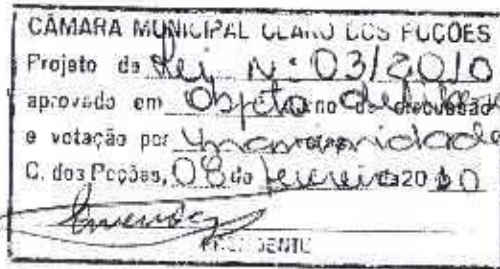 CÂMARA MUNICIPAL CLARO DOS POÇÕES
Projeto de Lei N: 03/2010
aprovado em Objeto no de discussão
e votação por Unanimidade
C. dos Poções, 08 de fevereiro 20 10
PRESIDENTE